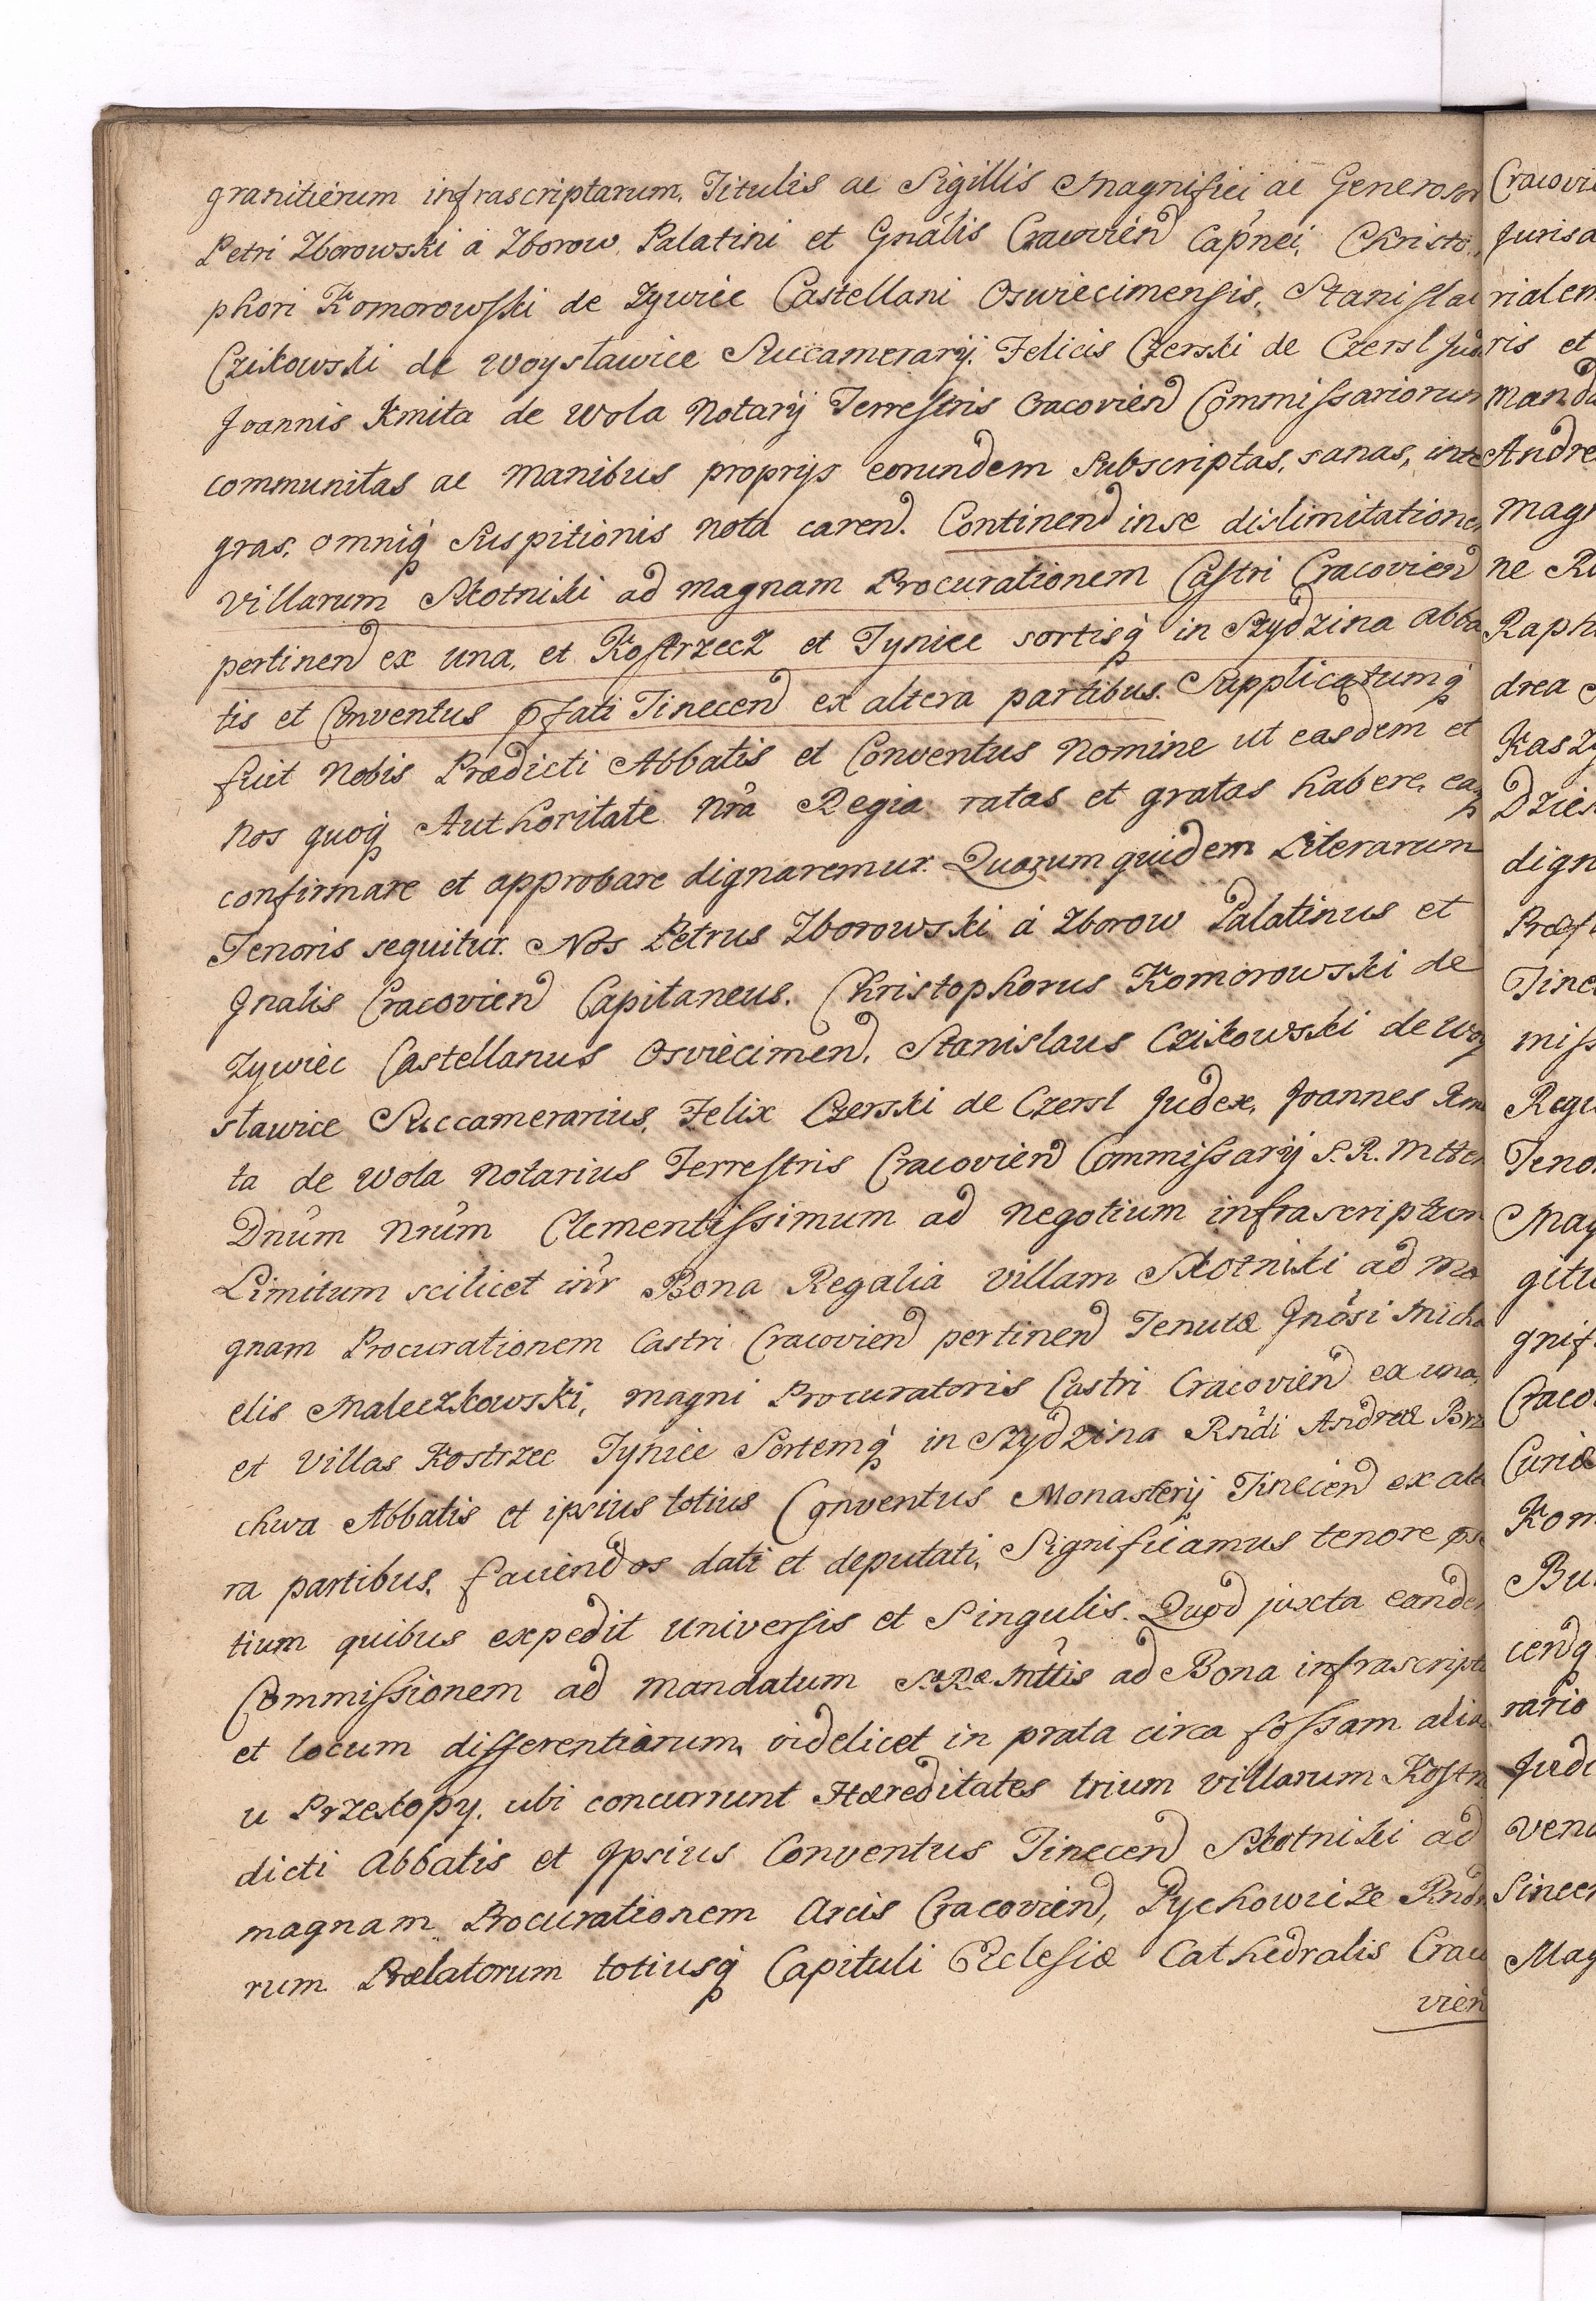 granitierum infrascriptarum, Titulis ac Sigillis Magnifici ac Generosor
Petri Zborowski à Zborow, Palatini et Gnális Cracovien̄ Cap̃nei, Christo
phori Komorowski de Zywiec Castellani Oswiecimensis, Stanislai
Czikowski de Woysławice Succamerarij, Felicis Czerski de Czersl Jud
Joannis Kmita de Wola Notarij Terrestris Cracovień Commissariorum
communitas ac manibus proprijs eorundem Subscriptas, sanas, inte
gras, omniq́ Suspitionis nota caren̄. Continen̄ in se dislimitationem
villarum Skotniki ad magnam Procurationem Castri Cracovien̄
pertinen̄ ex una, et Kostrzecz et Tyniec sortisq́ in Sydzina Abba
tis et Conventus pfati Tinecen̄ ex altera partibus. Supplicatumq́
fuit Nobis Prædicti Abbatis et Conventus nomine ut easdem et
nos quoq́ Authoritate nr̃a Regia ratas et gratas habere, easq
confirmare et approbare dignaremur. Quarum quidem Literarum
Tenoris sequitur. Nos Petrus Zborowski á Zborow Palatinus et
Gnalis Cracovien̄ Capitaneus. Christophorus Komorowski de
Zywiec Castellanus Osviecimen̄, Stanislaus Czikowski de Woy
sławice Succamerarius, Felix Czerski de Czersl Judex, Joannes Kmi
ta de Wola Notarius Terrestris Cracovień Commissarij S. R. Mtten
Dn̄um Nr̃um Clementissimum ad negotium infrascriptum
Limitum scilicet in̄r Bona Regalia villam Skotniki ad ma
gnam Procurationem Castri Cracovien̄ pertinen̄ Tenutæ Gn̄osi Micha
elis Maleczkowski, magni Procuratoris Castri Cracovień ex una,
et Villas Kostrzec Tyniec Sortemq́ in Sydzina Rn̄di Andreæ Brz
chwa Abbatis et ipsius totius Conventus Monasterij Tinecien̄ ex alte
ra partibus, faciendos dati et deputati, Significamus tenore pse
tium quibus expedit universis et Singulis. Quod juxta eandem
Commissionem ad mandatum Sæ Ræ Mttis ad Bona infrascripta
et locum differentiarum, videlicet in prata circa fossam alias
u Przekopy, ubi concurrunt Hæreditates trium villarum Kostrz
dicti Abbatis et Ipsius Conventus Tinecen̄ Skotniki ad
magnam Procurationem Arcis Cracovien̄, Pychowize Rndo
rum Prælatorum totiusq́ Capituli Ecclesiæ Cathedralis Craco
vien